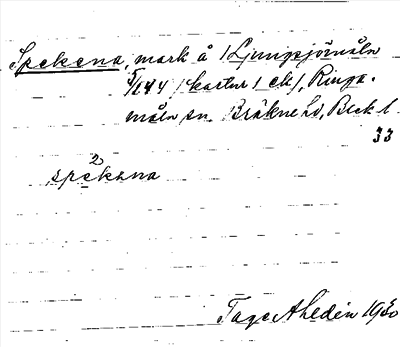 Spekena, mark å /Ljungsjömåla
5/144 /kartur/ ek/, Ringa-
måla sn Bräkne hd, Blek l.
33
2
spekena
Tage Ahldén 1930